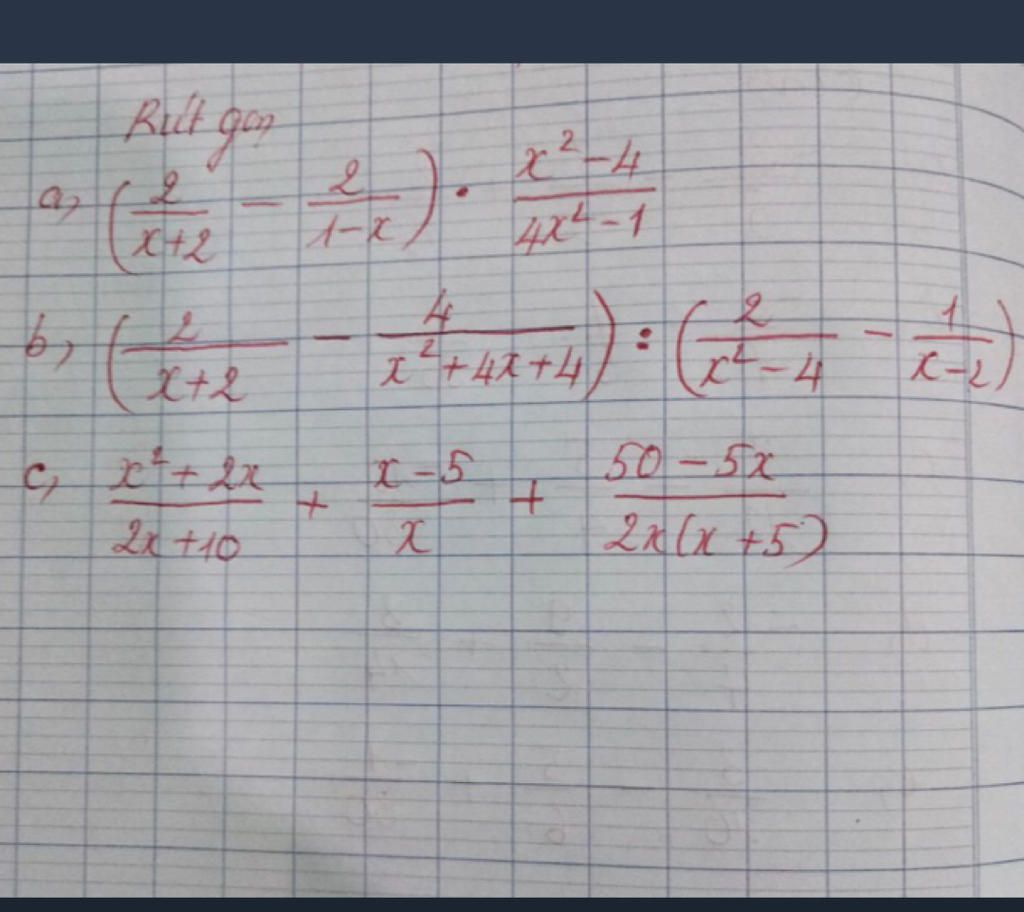 Rút gọn
a, (2/(x+2) - 2/(1-x)) · (x²-4)/(4x²-1)
b, (2/(x+2) - 4/(x²+4x+4)) : (2/(x²-4) - 1/(x-2))
c, (x²+2x)/(2x+10) + (x-5)/x + (50-5x)/(2x(x+5))